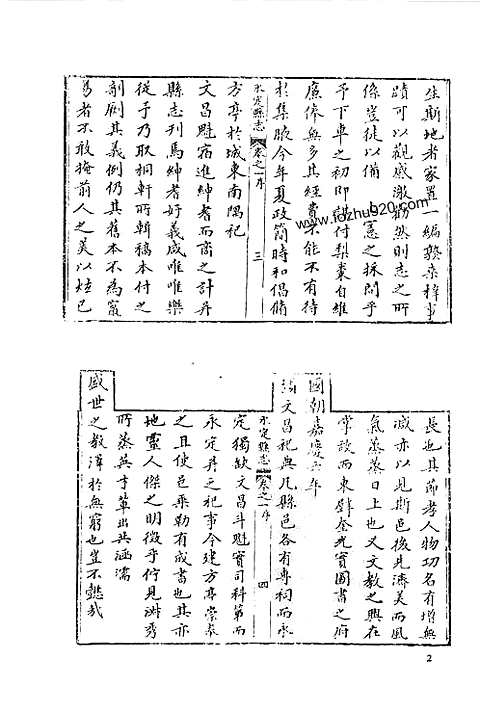 生斯地者家置一編務求稽事
蹟可以觀感激勸然則志之所
係豈徒以備 憲之採問乎
予下車之初即謀付梨棗自維
廉俸無多其經費不能不有待
於集腋今年夏政簡時和倡脩
永定縣志 卷之一序 三
方亭於城東南隅祀
文昌魁宿進紳耆而商之計并
縣志刊焉紳耆好義咸唯唯樂
從予乃取桐軒所輯稿本付之
剞劂其義例仍其舊本不為竄
易者不敢掩前人之美以炫己
長也其節孝人物功名有增無
減亦以見斯邑後先濟美而風
氣蒸蒸日上也又文教之興在
常設而東壁奎光實圖書之府
國朝嘉慶六年
詔文昌祀典凡縣邑各有專祠而永
定獨缺文昌斗魁實司科第而
永定縣志 卷之一序 四
永定并之祀事今建方亭崇泰
之且使邑乘勒有成書也其亦
地靈人傑之明徵乎佇見洪秀
所蒸英才輩出共涵濡
盛世之教澤於無窮也豈不懿哉
www.fozhu920.com
2